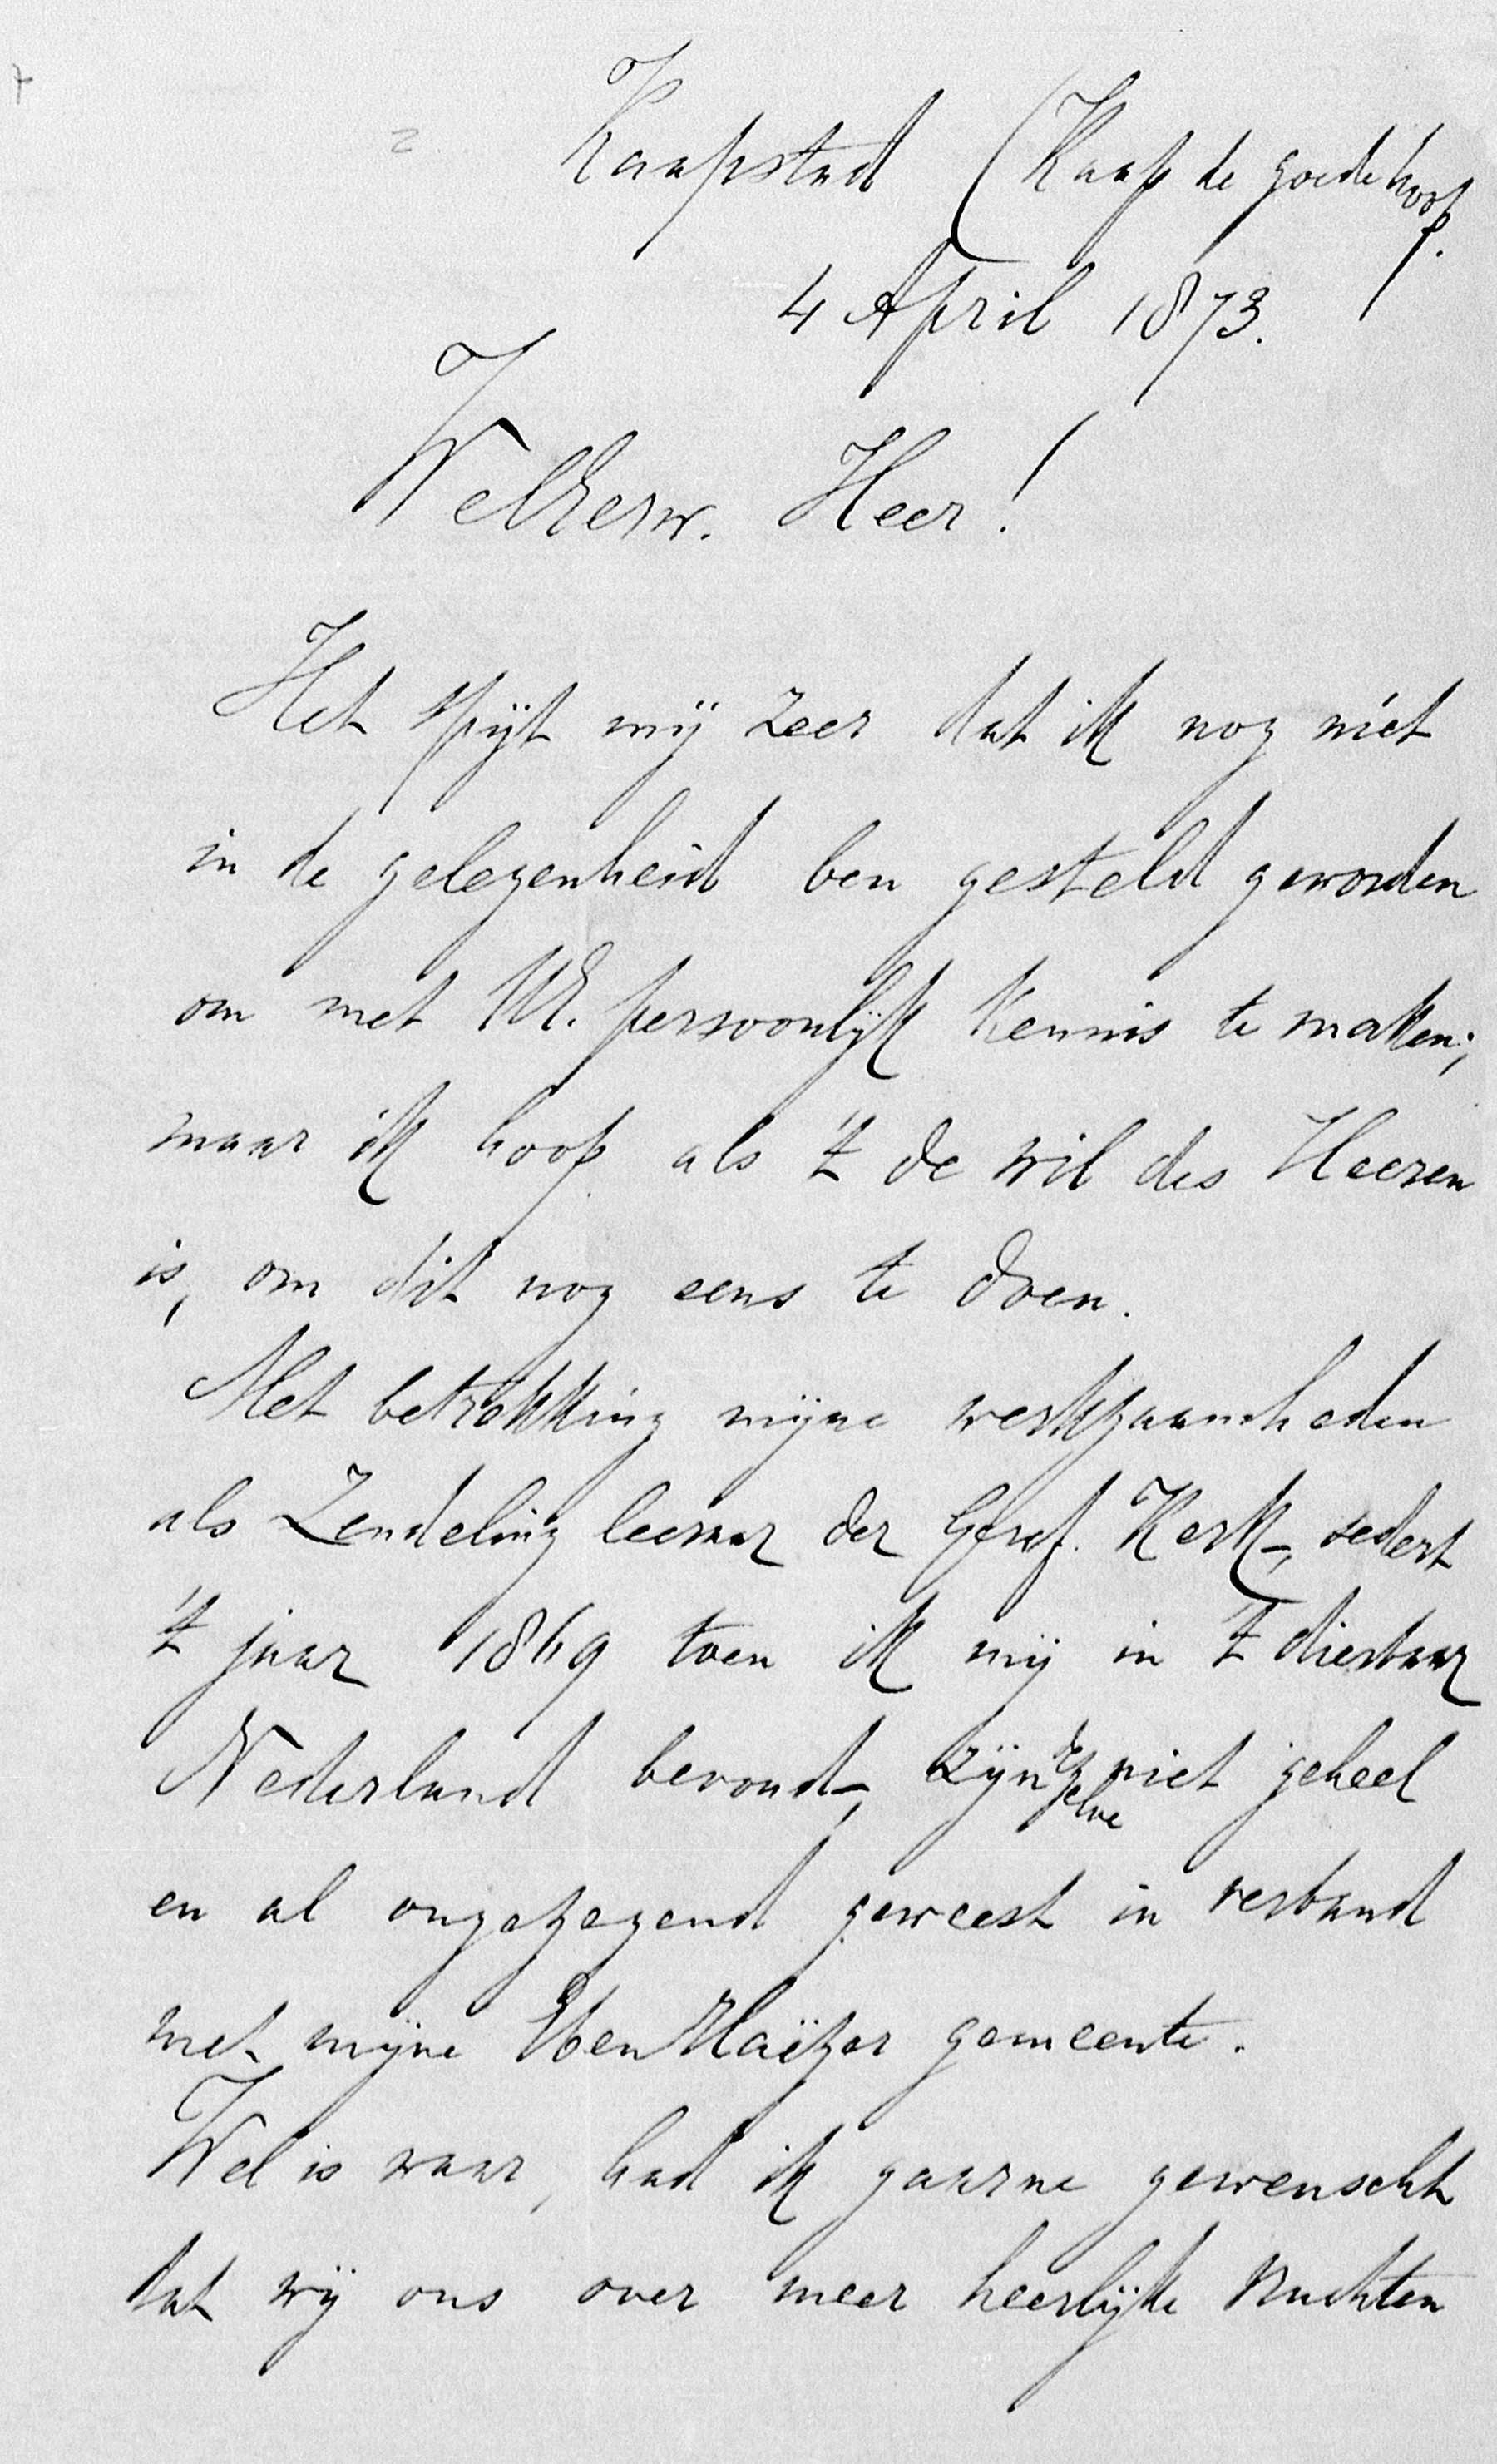 Kaapstad (Kaap de goede hoop.)
4 April 1873.
WelEerw. Heer!
Het spijt mij zeer dat ik nog niet
in de gelegenheid ben gesteld geworden
om met UE. persoonlijk kennis te maken;
maar ik hoop als 't de wil des Heeren
is, om dit nog eens te doen.
Met betrekking mijne werkzaamheden
als Zendeling leeraar der Geref. Kerk, sedert
't jaar 1869 toen ik mij in 't dierbaar
Nederland bevond, zijn dezelve niet geheel
en al ongezegend geweest in verband
met mijne Eben Haëzer gemeente.
Wel is waar, had ik gaarne gewenscht
dat wij ons over meer heerlijke vruchten